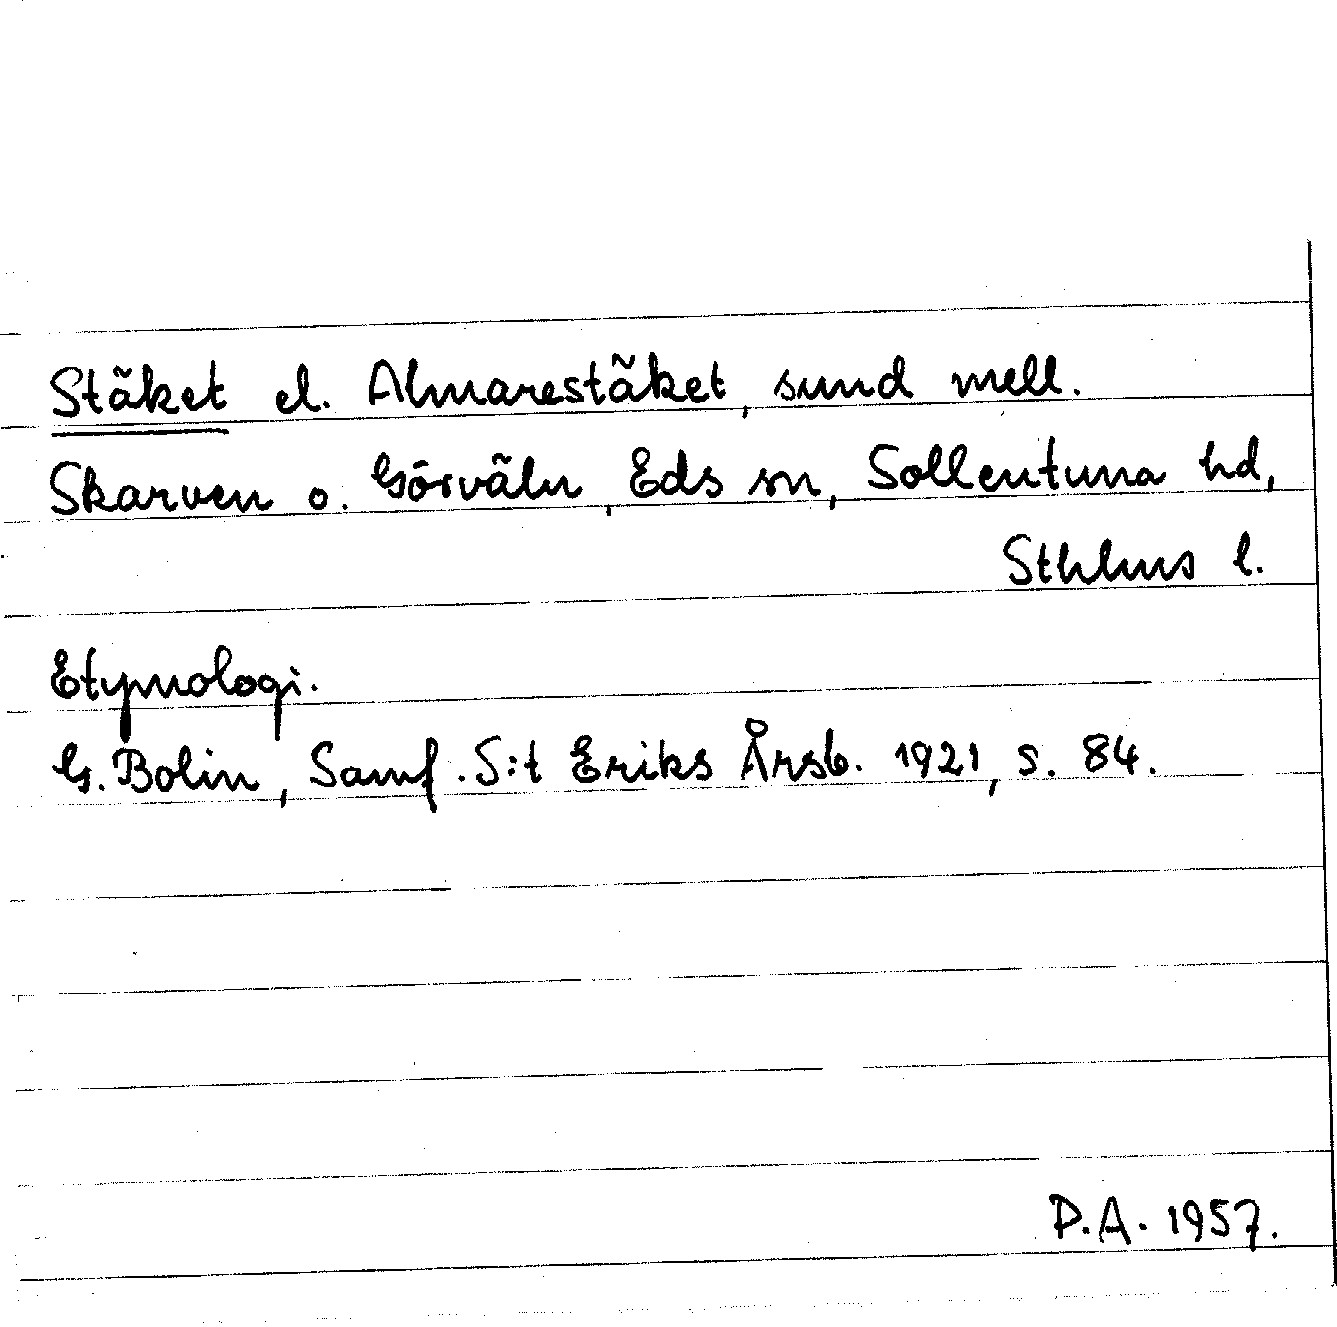 Stäket el. Almarestäket, sund mell.
Skarven o. Görväln, Eds sn, Sollentuna hd,
Sthlms l.
Etymologi.
G. Bolin, Samf. S:t Eriks Årsb. 1921, s. 84.
P.A. 1957.